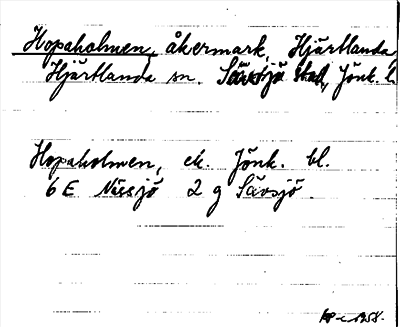 Hopaholmen, åkermark, Hjärtlanda,
Hjärtlanda sn. Sävsjö stad, Jönk. l.
Hopaholmen, ek. Jönk. bl.
6 E Nässjö 2 g Sävsjö.
1958.